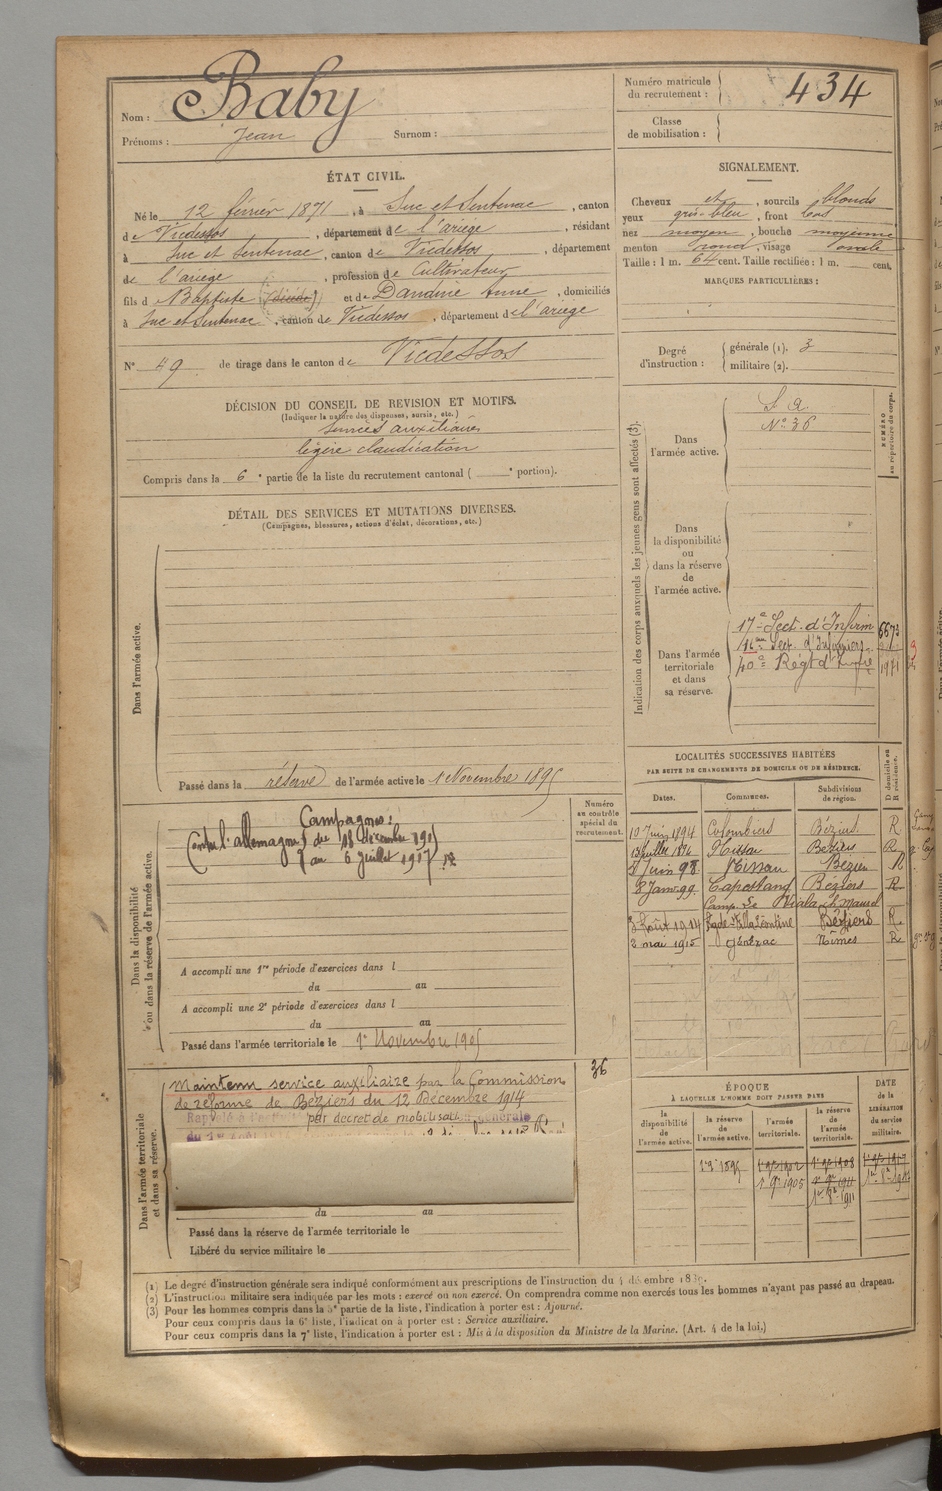 Nom : Baby
Prénoms : Jean Surnom :
Numéro matricule du recrutement : 434
Classe de mobilisation :
ÉTAT CIVIL.
Né le 12 février 1871, à Suc et Sentenac, canton
de Vicdessos, département de l'ariège, résidant
à Suc et Sentenac, canton de Vicdessos, département
de l'ariège, profession de Cultivateur
fils d Baptiste (décédé) et de Dandine Anne, domiciliés
à Suc et Sentenac, canton de Vicdessos, département de l'ariège
N° 49 de tirage dans le canton de Vicdessos
SIGNALEMENT.
Cheveux et, sourcils blonds
yeux gris-bleu, front
nez moyen, bouche moyenne
menton rond, visage ovale
Taille : 1 m. 64 cent. Taille rectifiée : 1 m. cent.
MARQUES PARTICULIÈRES :
Degré d'instruction : générale (1). 3
militaire (2).
DÉCISION DU CONSEIL DE REVISION ET MOTIFS.
(Indiquer la nature des dispenses, sursis, etc.)
services auxiliaires
légère claudication
Compris dans la 6e partie de la liste du recrutement cantonal ( e portion).
DÉTAIL DES SERVICES ET MUTATIONS DIVERSES.
(Campagnes, blessures, actions d'éclat, décorations, etc.)
Dans l'armée active.
Passé dans la réserve de l'armée active le 1 Novembre 1895
Indication des corps auxquels les jeunes gens sont affectés (3).
NUMÉRO au répertoire du corps.
Dans l'armée active.
S. A.
N° 36
Dans la disponibilité ou dans la réserve de l'armée active.
Dans l'armée territoriale et dans sa réserve.
17e Sect. d'Infirm 6673
16e Sect. d'Infirmiers
40e Régt d'Inftie 1971
LOCALITÉS SUCCESSIVES HABITÉES
PAR SUITE DE CHANGEMENTS DE DOMICILE OU DE RÉSIDENCE.
Dates. Communes. Subdivisions de région. D domicile ou R résidence.
10 Juin 1894 Colombiers Béziers R
13 Juillet 1896 Nissan Béziers R
Juin 98 Nissan Béziers R
8 Janv. 99 Capestang Béziers R
Camp. de
3 Août 1914 Béziers R
2 mai 1915 Générac Nîmes R
Dans la disponibilité ou dans la réserve de l'armée active.
Numéro au contrôle spécial du recrutement.
Campagnes :
Contre l'allemagne du 18 décembre 1915
au 6 juillet 1917
A accompli une 1re période d'exercices dans l
du au
A accompli une 2e période d'exercices dans l
du au
Passé dans l'armée territoriale le 1er Novembre 1905
36
Dans l'armée territoriale et dans sa réserve.
Maintenu service auxiliaire par la Commission
de réforme de Béziers du 12 Décembre 1914
Rappelé à l'activité par décret de mobilisation générale
du au
Passé dans la réserve de l'armée territoriale le
Libéré du service militaire le
ÉPOQUE
À LAQUELLE L'HOMME DOIT PASSER DANS
DATE de la LIBÉRATION du service militaire.
la disponibilité de l'armée active.
la réserve de l'armée active.
l'armée territoriale.
la réserve de l'armée territoriale.
1er 9bre 1895 1er 9bre 1902 1er 9bre 1908 1er 9bre 1917
1er 9bre 1905 1er 9bre 1911
(1) Le degré d'instruction générale sera indiqué conformément aux prescriptions de l'instruction du 4 décembre
(2) L'instruction militaire sera indiquée par les mots : exercé ou non exercé. On comprendra comme non exercés tous les hommes n'ayant pas passé au drapeau.
(3) Pour les hommes compris dans la 5e partie de la liste, l'indication à porter est : Ajourné.
Pour ceux compris dans la 6e liste, l'indication à porter est : Service auxiliaire.
Pour ceux compris dans la 7e liste, l'indication à porter est : Mis à la disposition du Ministre de la Marine. (Art. 4 de la loi.)